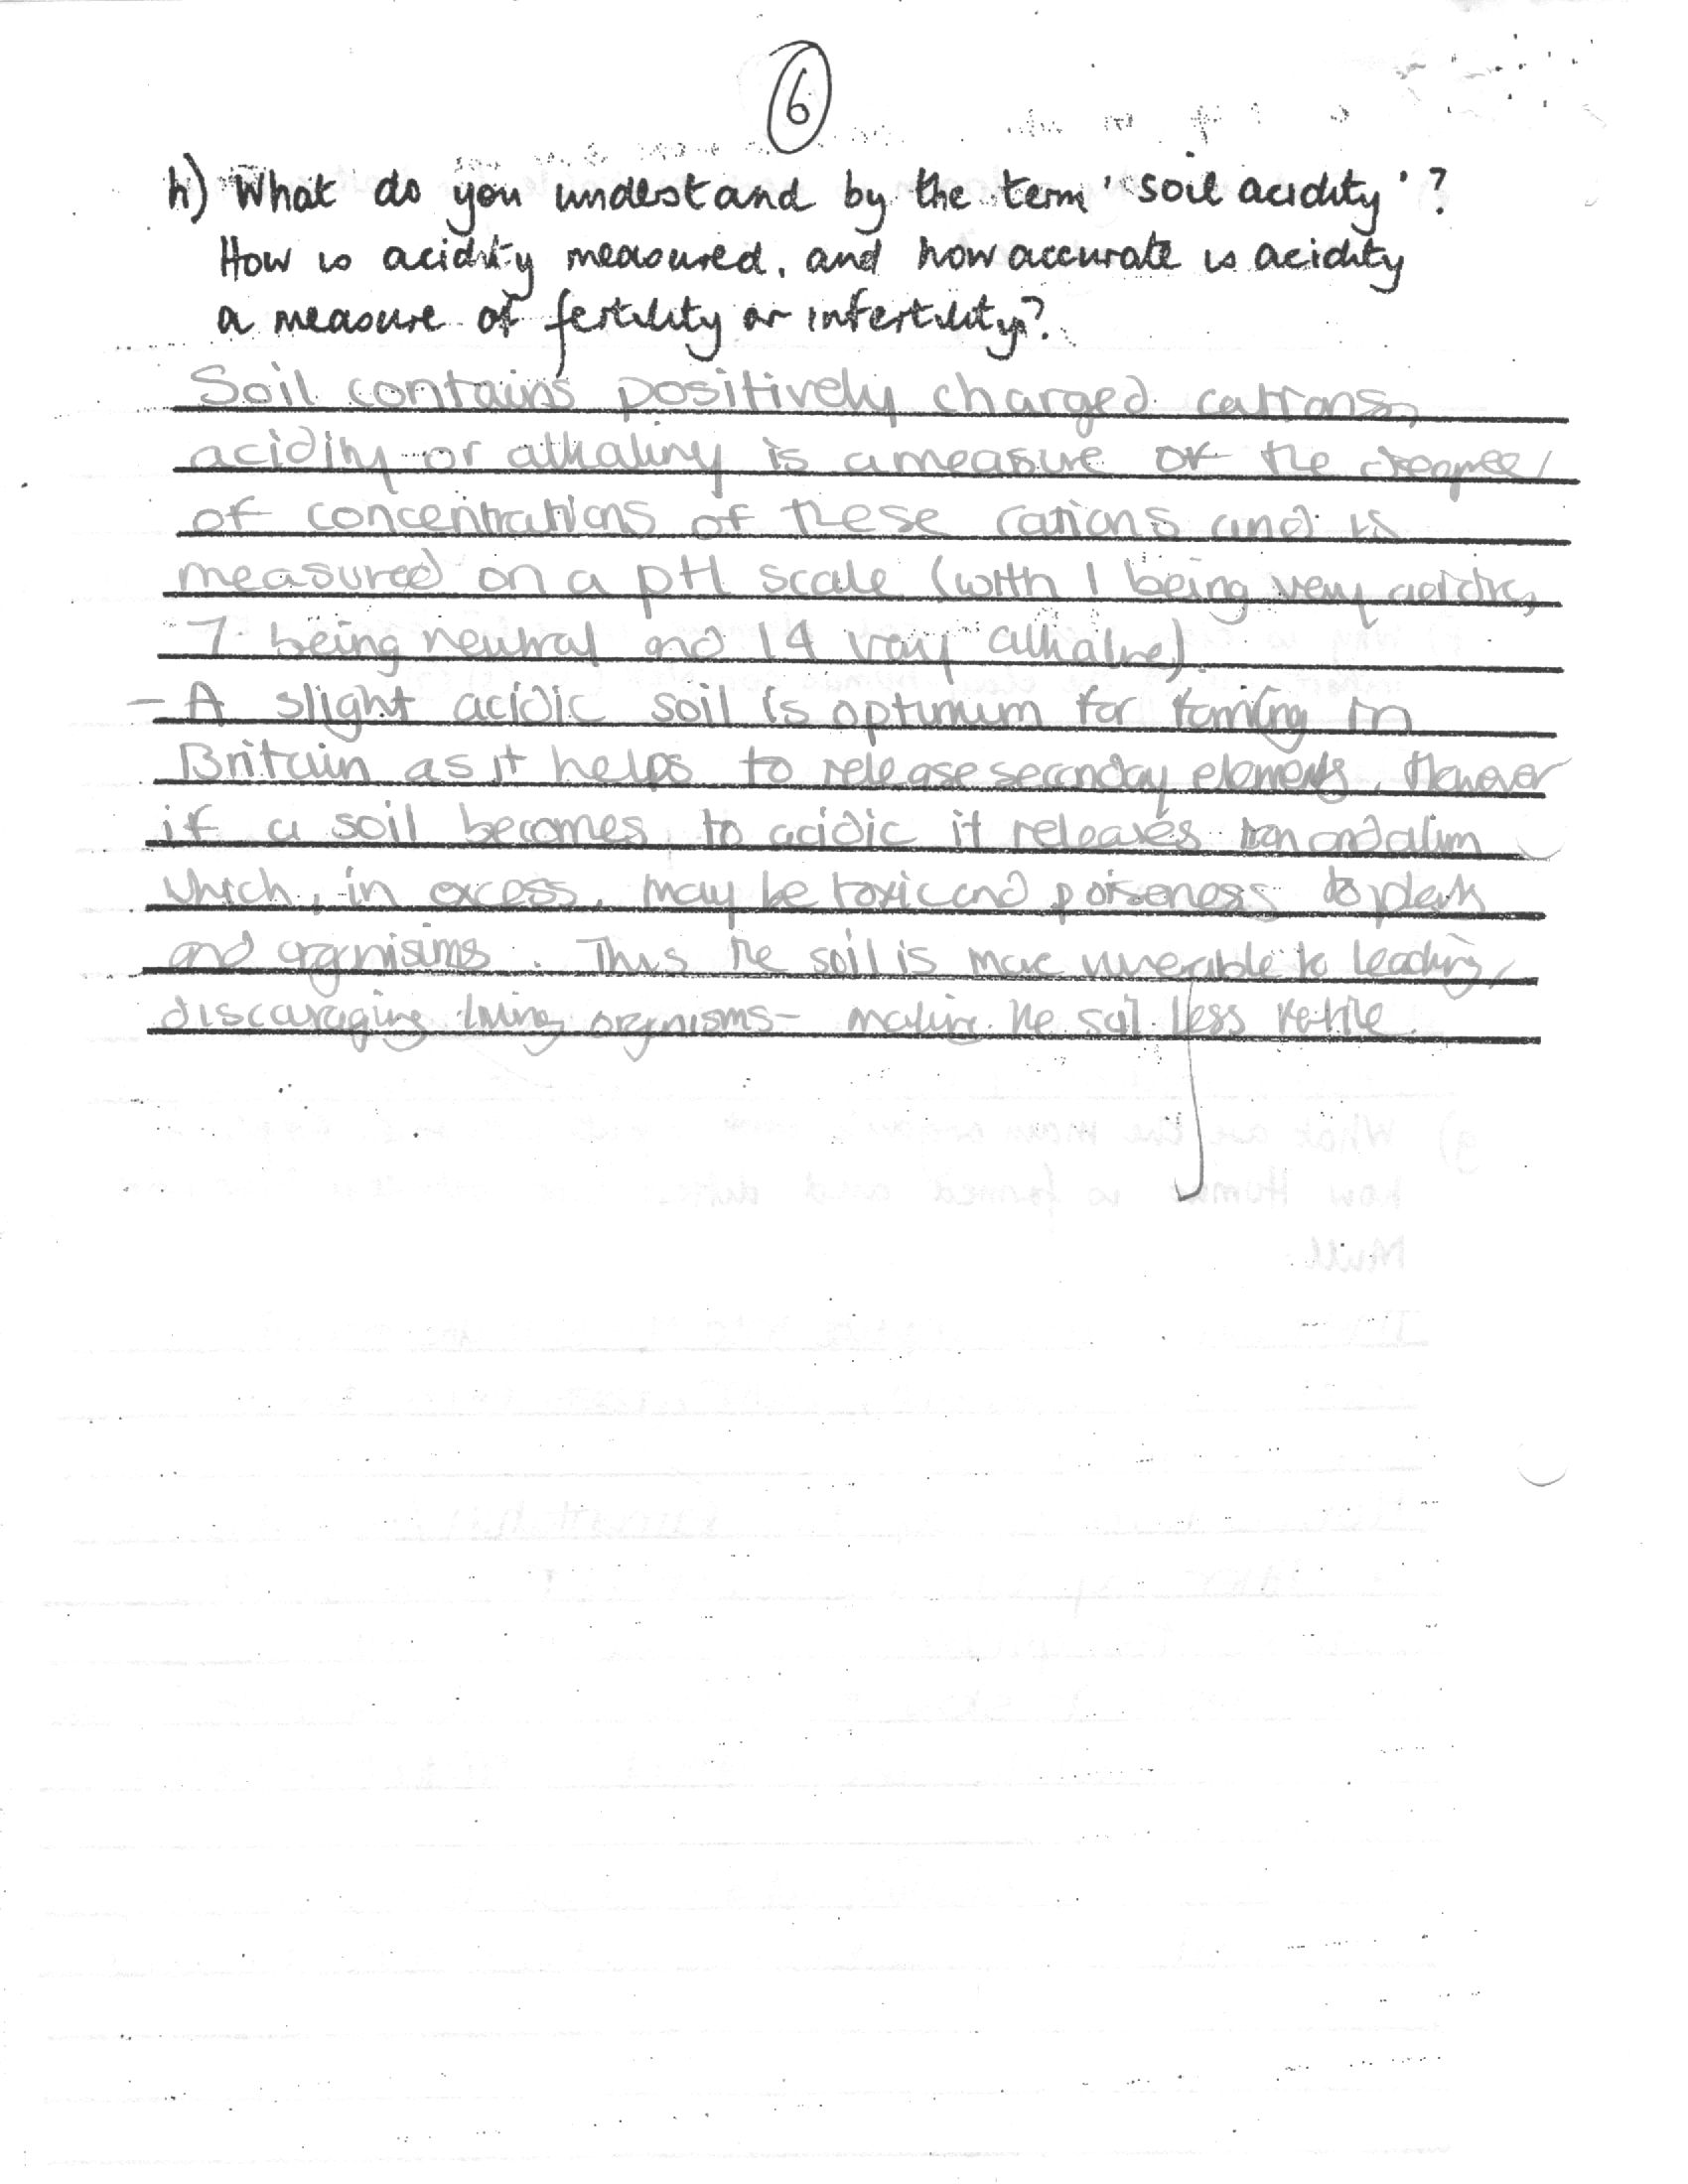 6
h) What do you understand by the term 'soil acidity'?
How is acidity measured, and how accurate is acidity
a measure of fertility or infertility?
Soil contains positively charged cations,
acidity or alkaliny is a measure of the degree/
of concentrations of these cations and is
measured on a pH scale (with 1 being very acidic,
7 being neutral and 14 very alkaline).
- A slight acidic soil is optimum for farming in
Britain as it helps to release seconday elements. However
if a soil becomes to acidic it releases iron and alim
which, in excess, may be toxic and poiseness to plants
and organisims. Thus the soil is more vunerable to leaching,
discouraging living organisms - making the soil less fertile.
g) What are the main
how Humus is formed and
Mull